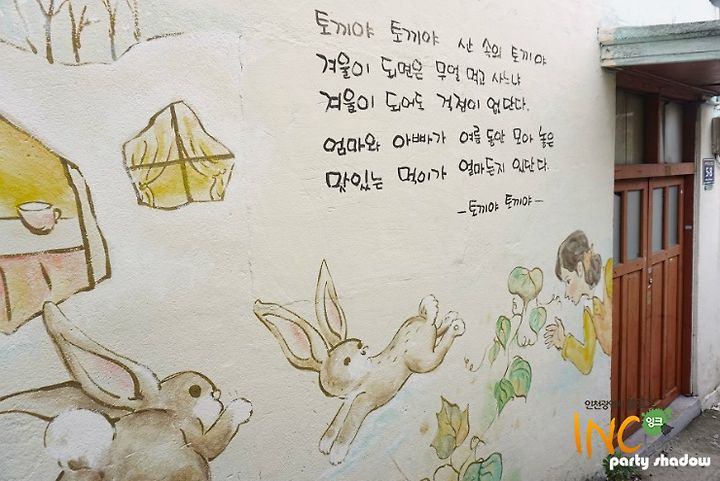 토끼야 토끼야 산 속의 토끼야
겨울이 되면은 무얼 먹고 사느냐
겨울이 되어도 걱정이 없단다.
엄마와 아빠가 여름 동안 모아 놓은
맛있는 먹이가 얼마든지 있단다.
-토끼야 토끼야-
58
INC
잉크
party shadow